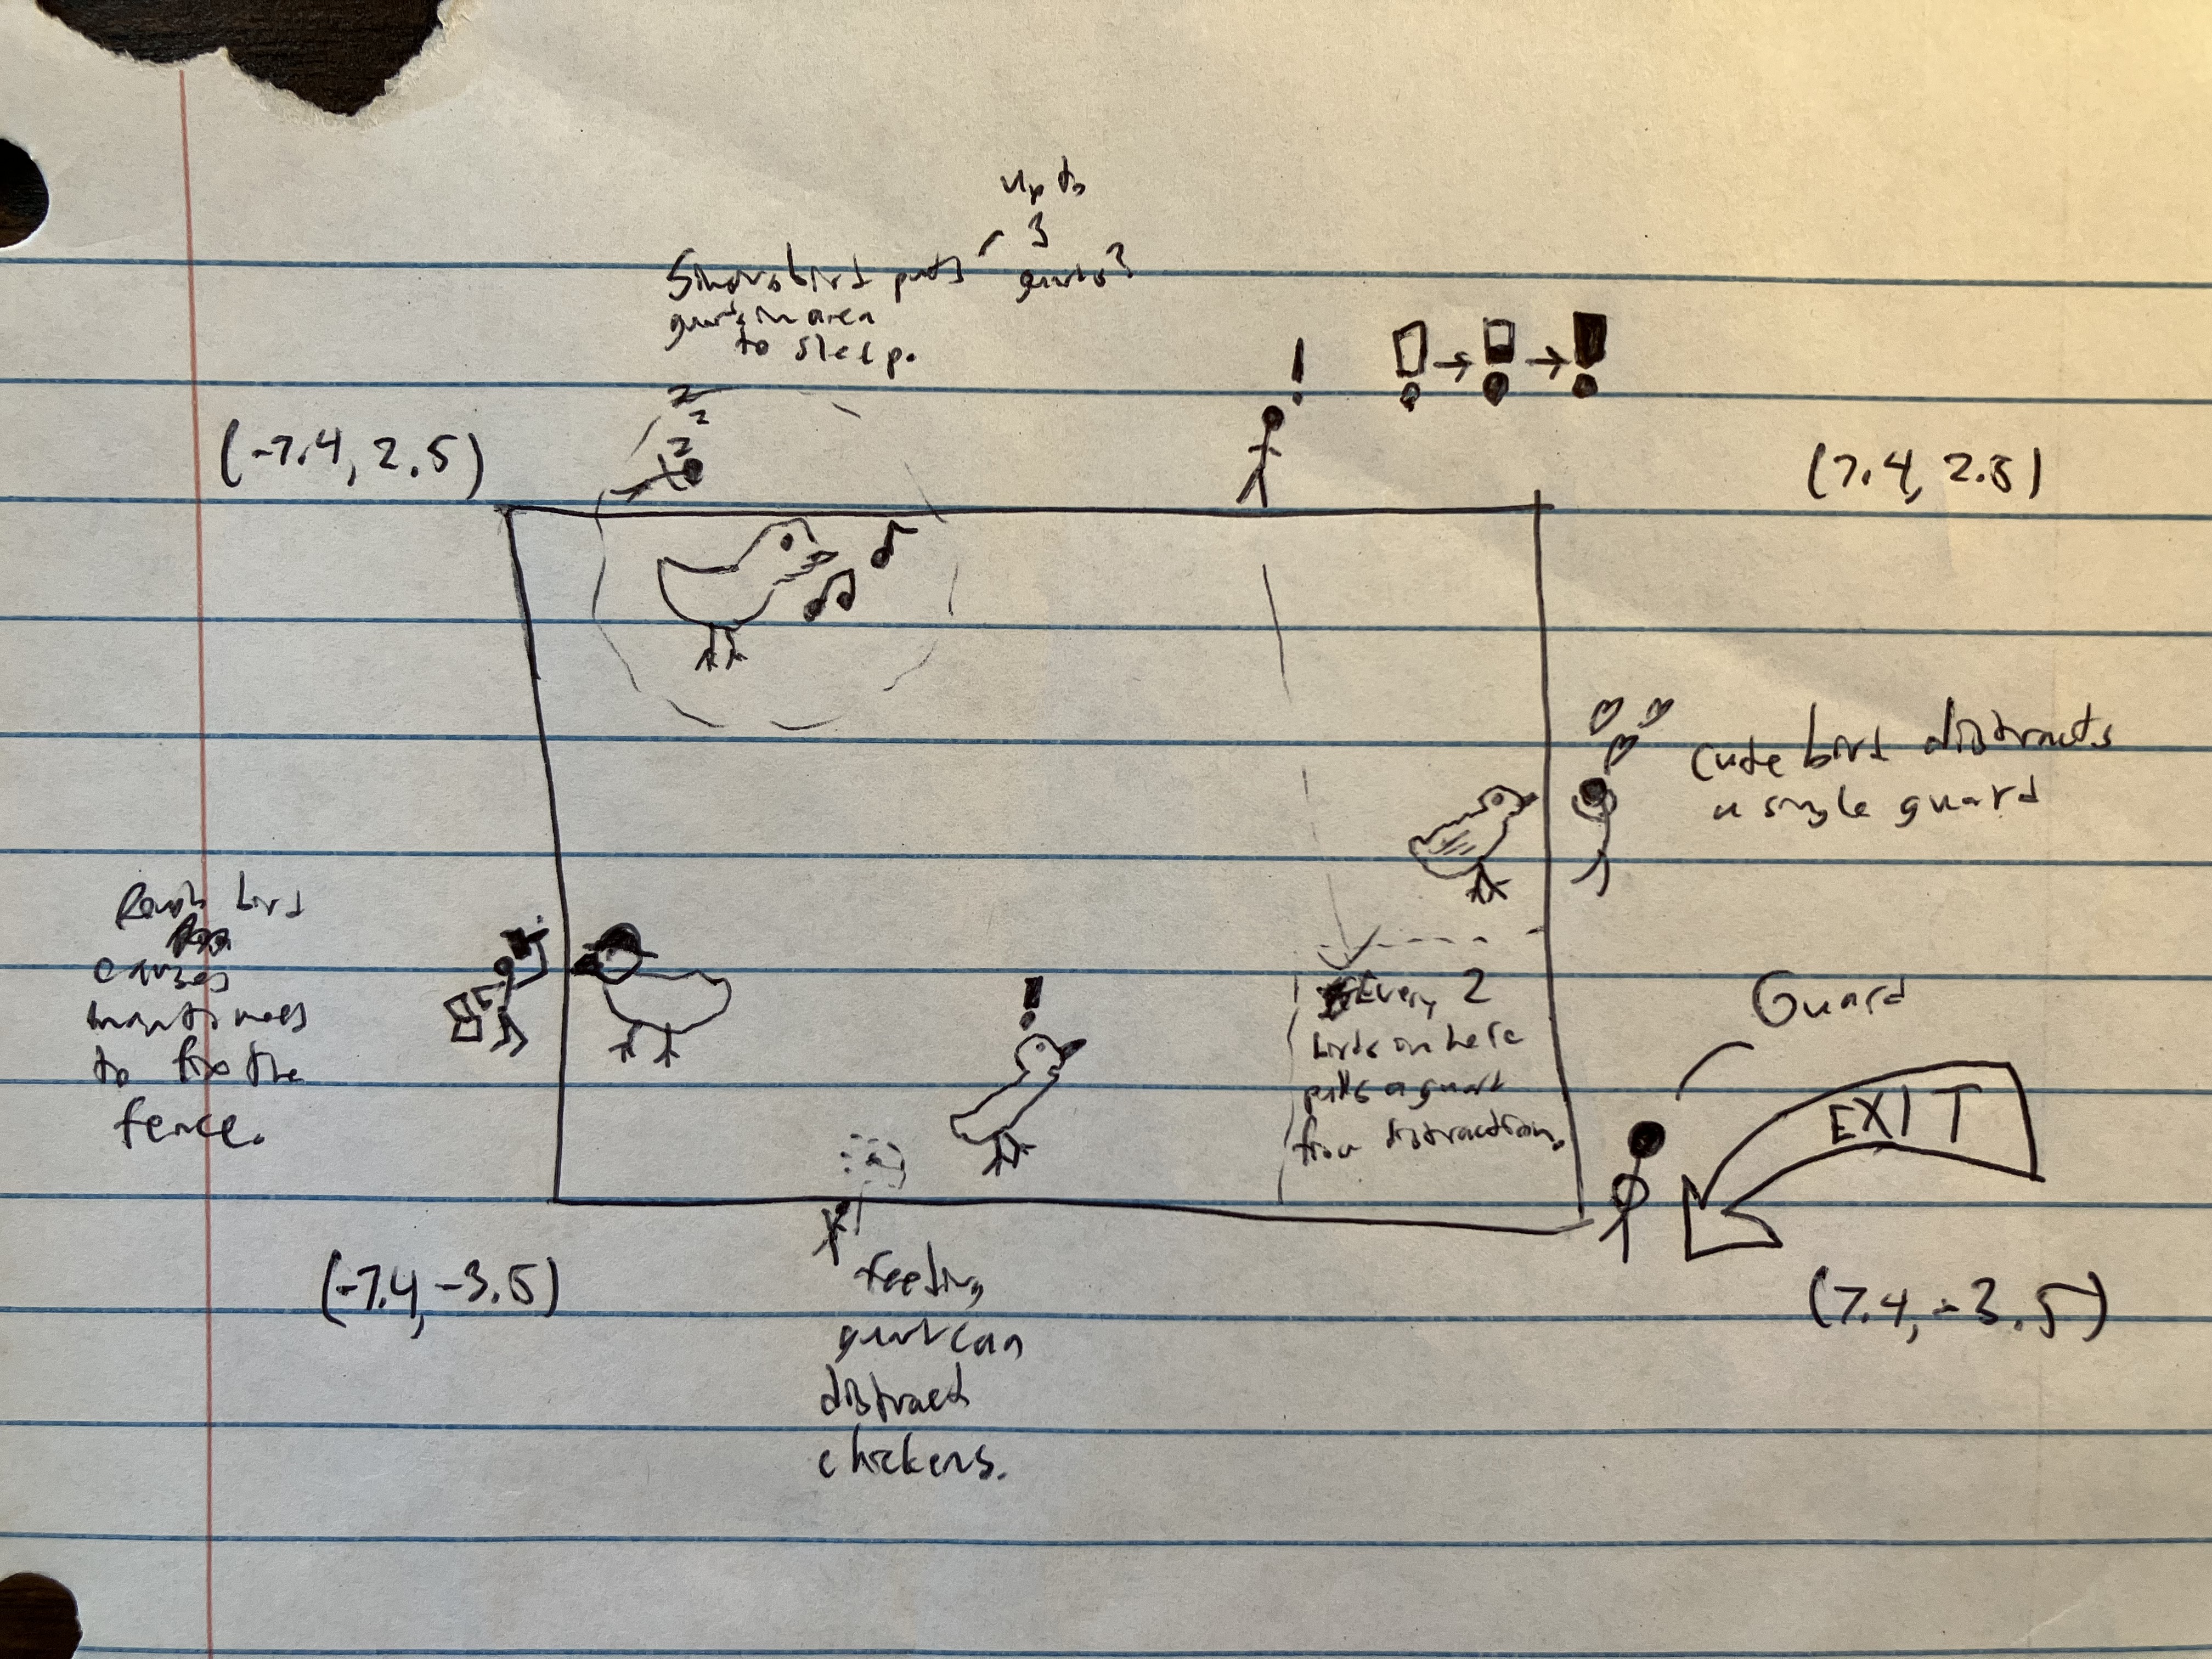 up to
3
guards?
Singing bird puts
guards in area
to sleep.
!
! → ! → !
(-7.4, 2.5)
(7.4, 2.5)
z
z
z
z
Cute bird distracts
a single guard
bird
causes
to fix the
fence.
!
Every 2
birds in here
pulls a guard
from distraction.
Guard
EXIT
(-7.4, -3.5)
(7.4, -3.5)
feeding
guard can
distract
chickens.